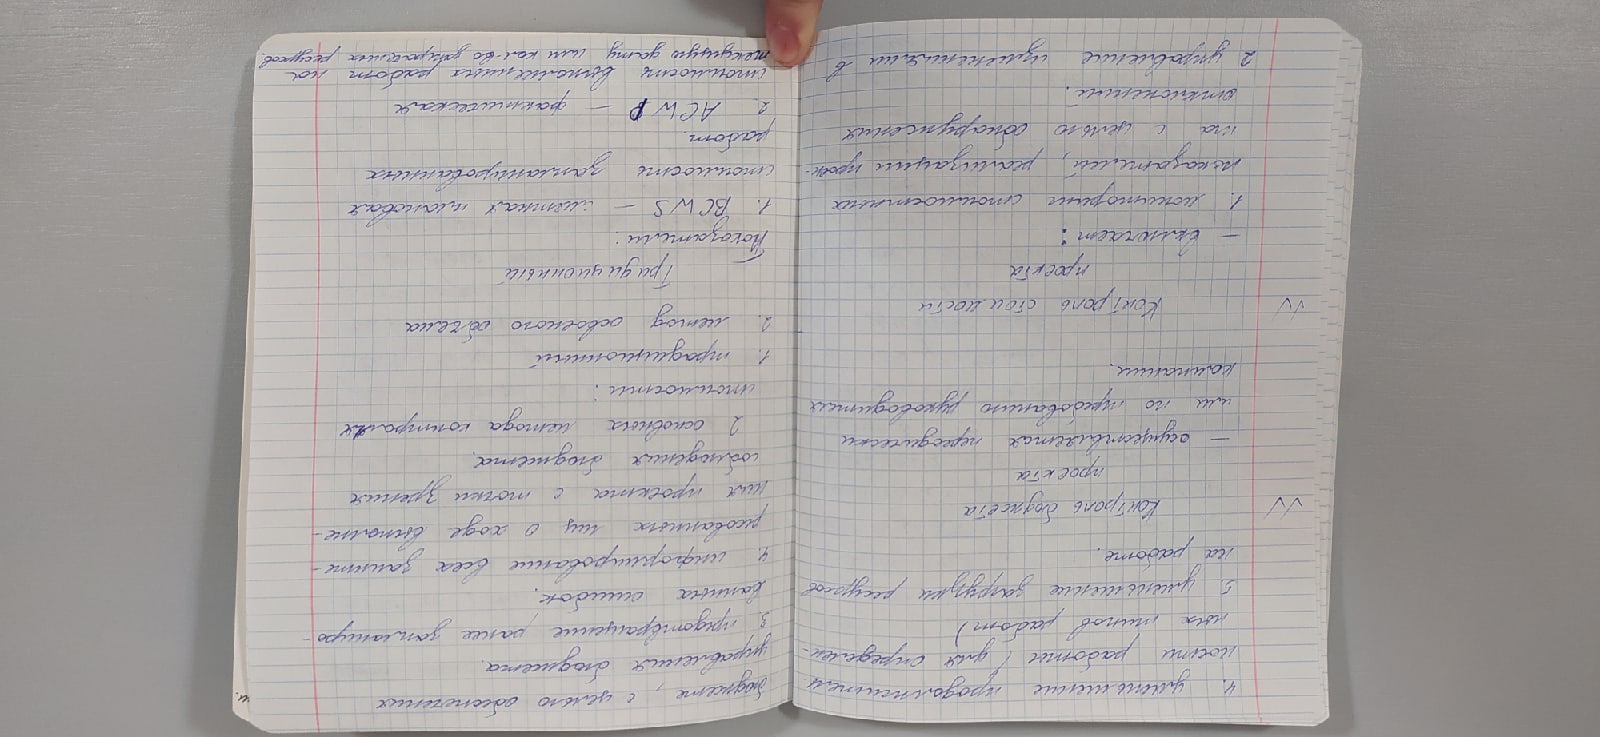 4. уменьшение продолжитель
ности работы (для определен-
ных типов работ)
5. уменьшение загрузки ресурсов
на работе.
Контроль бюджета
проекта
— осуществляется переодически
или по требованию руководителя
компании.
Контроль стоимости
проекта
— включает:
1. мониторинг стоимостных
показателей, реализации проек-
та с целью обнаружения
отклонений.
2 управление изменениями в
бюджете, с целью обеспечения
управления бюджета.
3. предотвращение ранее запланиро-
ванных ошибок.
4. информирование всех заинте-
ресованных лиц о ходе выполне-
ния проекта с точки зрения
соблюдения бюджета.
2 основных метода контроля
стоимости:
1. традиционный
2. метод освоеного объема
Традиционный
Показатели:
1. BCWS — сметная плановая
стоимость запланированных
работ.
2. ACWP — фактическая
стоимость выполненных работ на
текущую дату или кол-во затраченных ресурсов